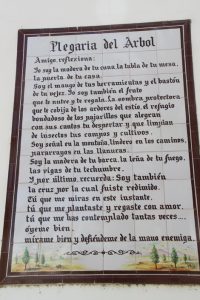 Plegaria del Arbol
Amigo, reflexiona:
Yo soy la madera de tu cuna, la tabla de tu mesa,
la puerta de tu casa.
Soy el mango de tus herramientas y el bastón
de tu vejez. Yo soy también el fruto
que te nutre y te regala. La sombra protectora
que te cobija de los ardores del estío, el refugio
bondadoso de los pajarillos que alegran
con sus cantos tu despertar y que limpian
de insectos tus campos y cultivos.
Soy señal en la montaña, lindero en los caminos,
pararrayos en las llanuras.
Soy la madera de tu barca, la leña de tu fuego,
las vigas de tu techumbre.
Y por último, recuerda: Soy también
la cruz por la cual fuiste redimido.
Tú que me miras en este instante,
tú que me plantaste y regaste con amor,
tú que me has contemplado tantas veces...,
óyeme bien,
mírame bien y defiéndeme de la mano enemiga.